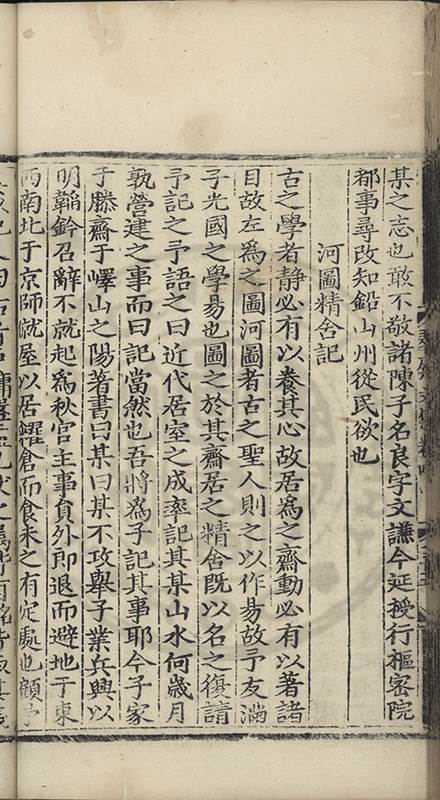 某之志也敢不敬諸陳子名良字文謙今延授行樞密院
都事尋改知鉛山州從民欲也
河圖精舍記
古之學者静必有以養其心故居爲之齋動必有以著諸
目故左爲之圖河圖者古之聖人則之以作昜故予友
子光國之學昜也圖之於其齋居之精舍既以名之復請
予記之予語之曰近代居室之成率記其某山水何歲月
孰營建之事而曰記當然也吾將爲子記其事耶今子家
于滕齋于嶧山之陽著書曰某曰某不攻舉子業兵興以
明韜鈐召辭不就起爲秋官主事員外即退而避地于東
西南北于京師就屋以居糴倉而食未之有定處也顧予